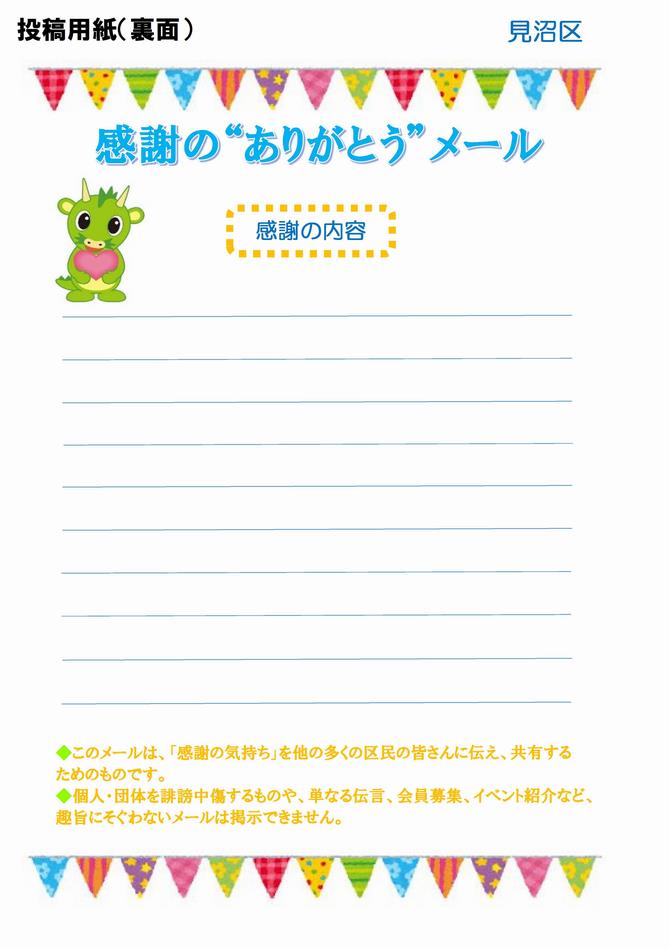 投稿用紙（裏面）
見沼区
感謝の“ありがとう”メール
感謝の内容
◆このメールは、「感謝の気持ち」を他の多くの区民の皆さんに伝え、共有する
ためのものです。
◆個人・団体を誹謗中傷するものや、単なる伝言、会員募集、イベント紹介など、
趣旨にそぐわないメールは掲示できません。